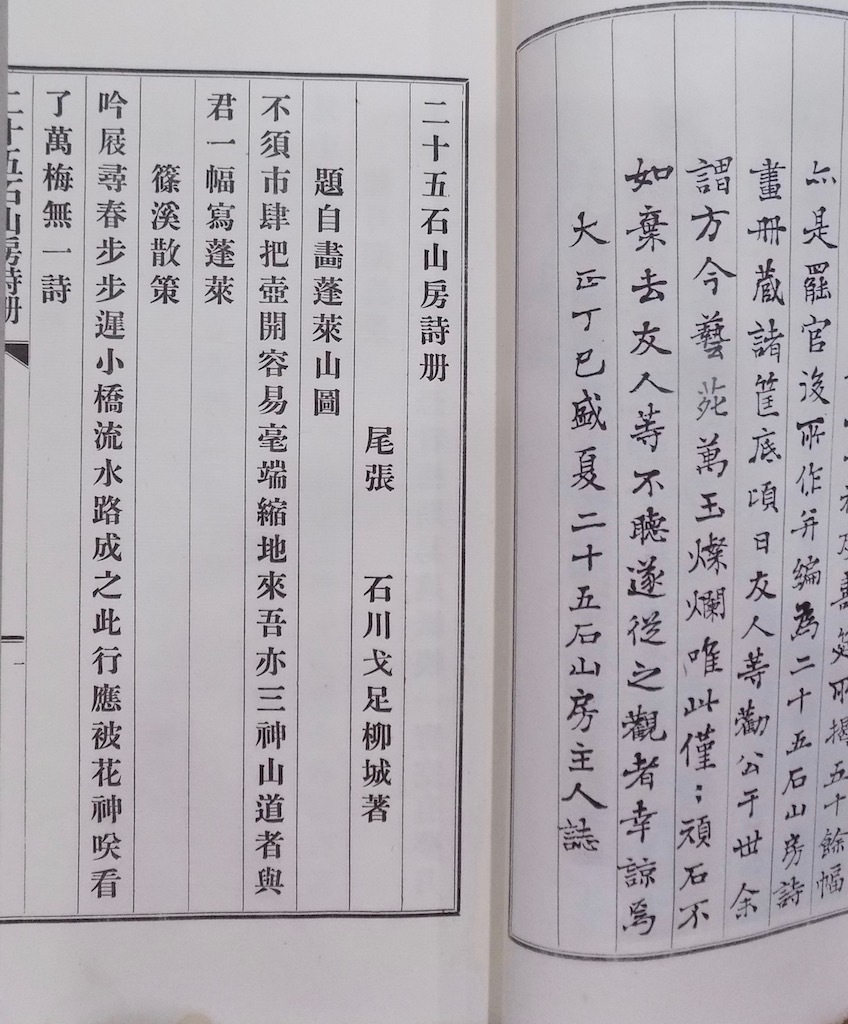 亦是罷官後所作并編為二十五石山房詩
畫冊蔵諸筐底頃日友人等勸公于世余
謂方今藝苑萬玉燦爛唯此僅〻頑石不
如棄去友人等不聴遂従之觀者幸諒焉
大正丁巳盛夏二十五石山房主人誌
二十五石山房詩册
尾張 石川戈足柳城著
題自畵蓬萊山圖
不須市肆把壺開容易毫端縮地來吾亦三神山道者與
君一幅寫蓬萊
篠溪散策
吟屐尋春步步遲小橋流水路成之此行應被花神咲看
了萬梅無一詩
二十五石山房詩册
一